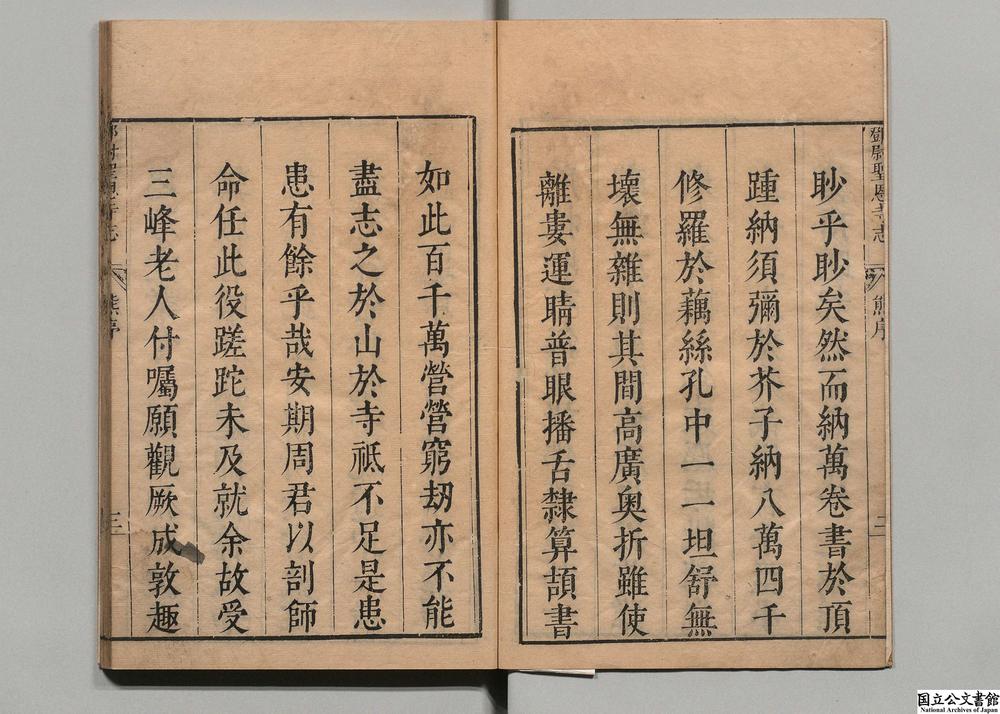 鄧尉聖恩寺志
熊序
三
眇乎眇矣然而納萬卷書於頂
踵納須彌於芥子納八萬四千
修羅於藕絲孔中一一坦舒無
壞無雜則其間高廣奧折雖使
離婁運睛普眼播舌隸算頡書
如此百千萬營營窮劫亦不能
盡志之於山於寺祗不足是患
患有餘乎哉安期周君以剖師
命任此役蹉跎未及就余故受
三峰老人付囑願觀厥成敦趣
鄧尉聖恩寺志
熊序
三
国立公文書館
National Archives of Japan